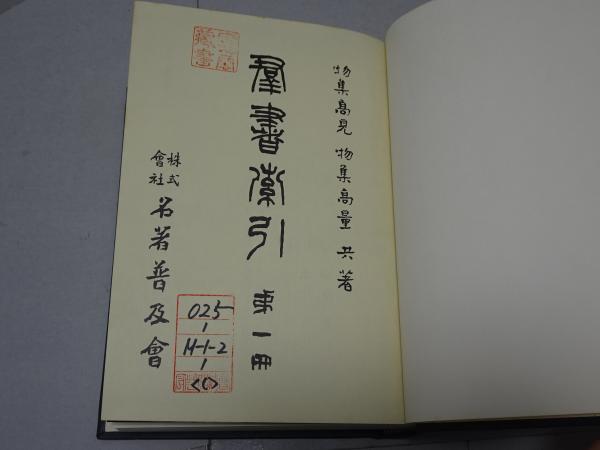 物集高見 物集高量 共著
羣書索引 第一冊
株式
會社
名著普及會
025
1
M-1-2
1
<C>